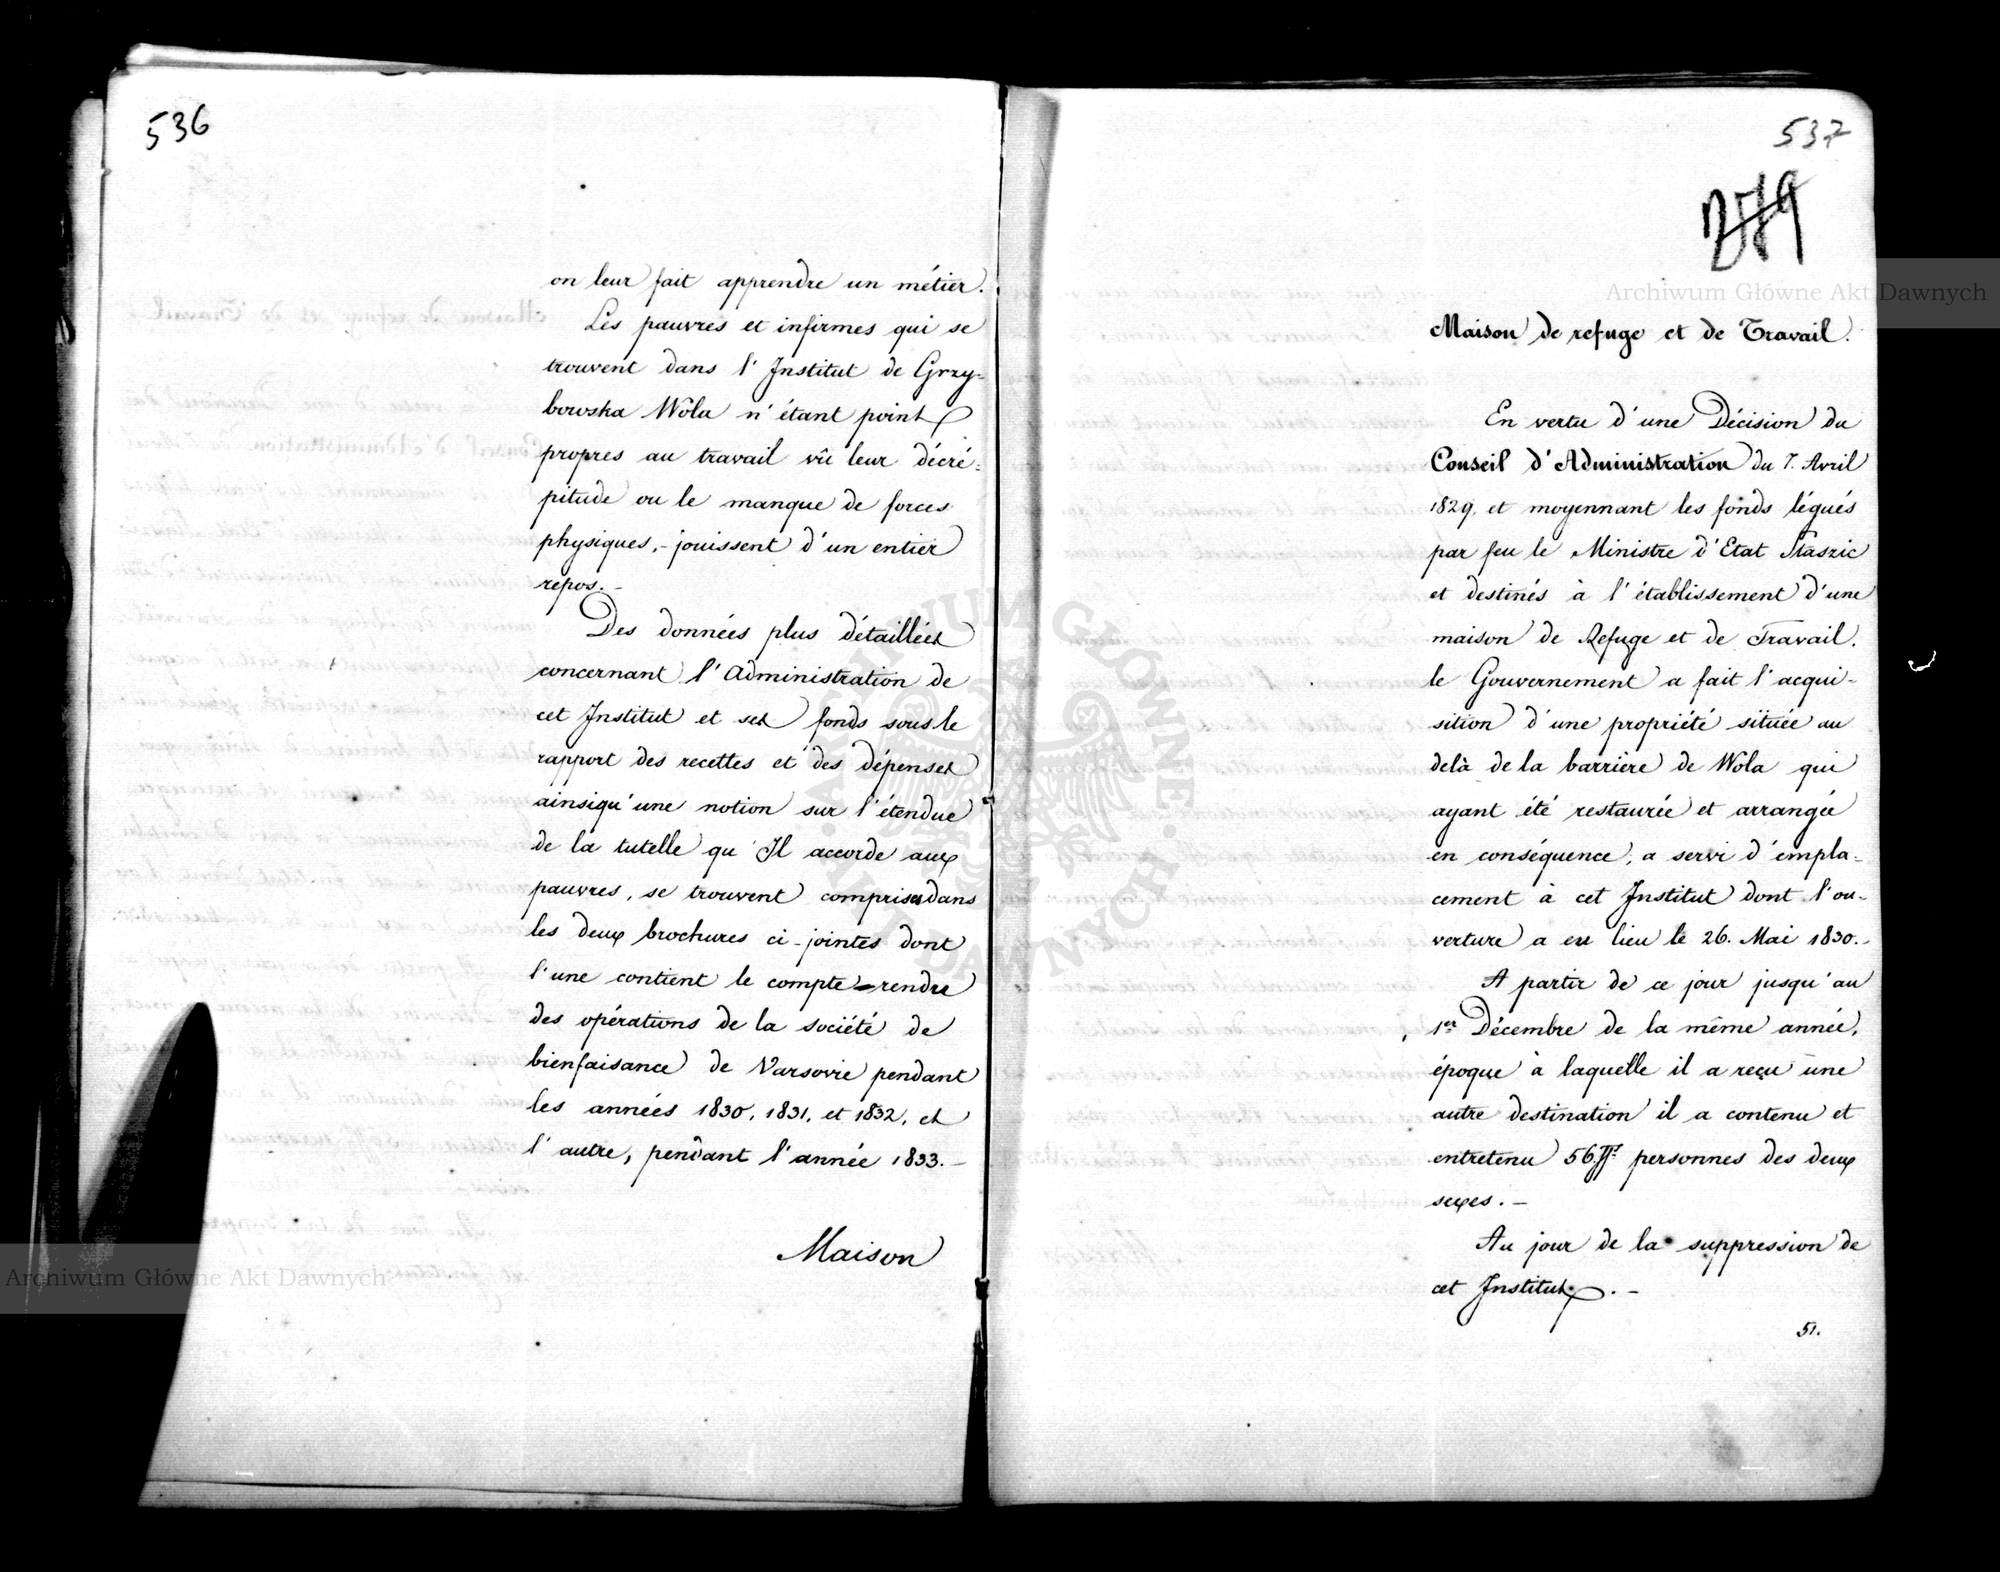 536
on leur fait apprendre un métier.
Les pauvres et infirmes qui se
trouvent dans l'Institut de Grzy-
bowska Wôla n'étant point
propres au travail vû leur décré-
pitude ou le manque de forces
physiques, - jouissent d'un entier
repos. -
Des données plus détaillées
concernant l'Administration de
cet Institut et ses fonds sous le
rapport des recettes et des dépenses
ainsiqu'une notion sur l'étendue
de la tutelle qu'Il accorde aux
pauvres, se trouvent comprises dans
les deux brochures ci-jointes dont
l'une contient le compte-rendu
des opérations de la société de
bienfaisance de Varsovie pendant
les années 1830, 1831, et 1832, et
l'autre, pendant l'année 1833. -
Maison
537
Maison de refuge et de Travail.
En vertu d'une Décision du
Conseil d'Administration du 7. Avril
1829, et moyennant les fonds légués
par feu le Ministre d'Etat Staszic
et destinés à l'établissement d'une
maison de Refuge et de Travail,
le Gouvernement a fait l'acqui-
sition d'une propriété située au
delà de la barrière de Wola qui
ayant été restaurée et arrangée
en conséquence, a servi d'empla-
cement à cet Institut dont l'ou-
verture a eu lieu le 26. Mai 1830. -
A partir de ce jour jusqu'au
1er Décembre de la même année,
époque à laquelle il a reçu une
autre destination il a contenu et
entretenu 56 personnes des deux
sexes. -
Au jour de la suppression de
cet Institut. -
51.
Archiwum Główne Akt Dawnych
Archiwum Główne Akt Dawnych
ARCHIWUM GŁÓWNE AKT DAWNYCH